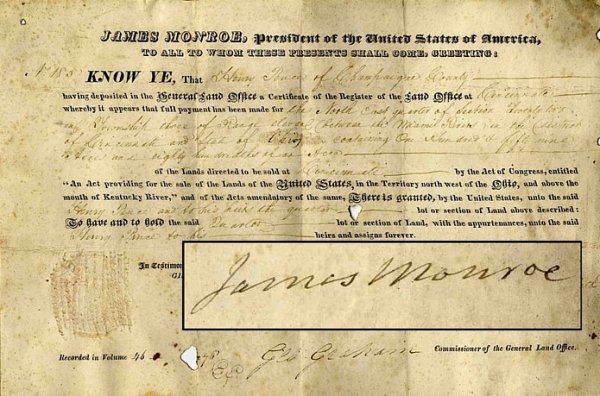 JAMES MONROE, President of the United States of America,
TO ALL TO WHOM THESE PRESENTS SHALL COME, GREETING:
KNOW YE, That Henry Pence of Champaign County
having deposited in the General Land Office a Certificate of the Register of the Land Office at Cincinnati
whereby it appears that full payment has been made for the North East quarter of Section
in Township three of Range between the Miami Rivers in the District
of Cincinnati and State of Ohio containing One Hundred & fifty nine
Acres and eighty hundredths of an Acre
of the Lands directed to be sold at Cincinnati by the Act of Congress, entitled
"An Act providing for the sale of the Lands of the United States, in the Territory north west of the Ohio, and above the
mouth of Kentucky River," and of the Acts amendatory of the same, There is granted, by the United States, unto the said
Henry Pence and to his heirs the quarter lot or section of Land above described:
To have and to hold the said quarter lot or section of Land, with the appurtenances, unto the said
Henry Pence to his heirs and assigns forever.
In Testimo
James Monroe
Recorded in Volume 46
Geo Graham Commissioner of the General Land Office.